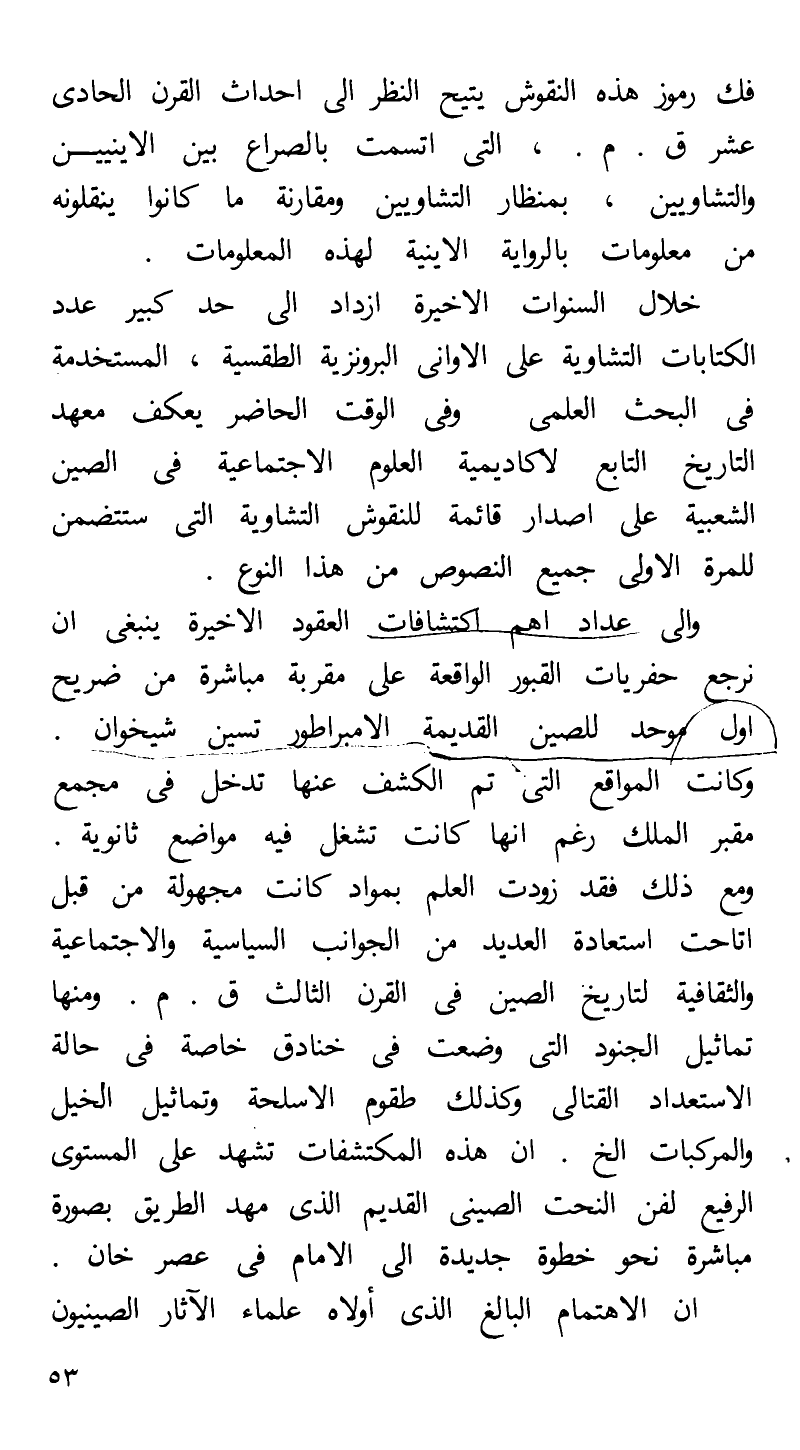 فك رموز هذه النقوش يتيح النظر الى احداث القرن الحادى
عشر ق . م . ، التى اتسمت بالصراع بين الاينييـــن
والتشاويين ، بمنظار التشاويين ومقارنة ما كانوا ينقلونه
من معلومات بالرواية الاينية لهذه المعلومات .
خلال السنوات الاخيرة ازداد الى حد كبير عدد
الكتابات التشاوية على الاوانى البرونزية الطقسية ، المستخدمة
فى البحث العلمى وفى الوقت الحاضر يعكف معهد
التاريخ التابع لاكاديمية العلوم الاجتماعية فى الصين
الشعبية على اصدار قائمة للنقوش التشاوية التى ستتضمن
للمرة الاولى جميع النصوص من هذا النوع .
والى عداد اهم اكتشافات العقود الاخيرة ينبغى ان
نرجع حفريات القبور الواقعة على مقربة مباشرة من ضريح
اول موحد للصين القديمة الامبراطور تسين شيخوان .
وكانت المواقع التى تم الكشف عنها تدخل فى مجمع
مقبر الملك رغم انها كانت تشغل فيه مواضع ثانوية .
ومع ذلك فقد زودت العلم بمواد كانت مجهولة من قبل
اتاحت استعادة العديد من الجوانب السياسية والاجتماعية
والثقافية لتاريخ الصين فى القرن الثالث ق . م . ومنها
تماثيل الجنود التى وضعت فى خنادق خاصة فى حالة
الاستعداد القتالى وكذلك طقوم الاسلحة وتماثيل الخيل
والمركبات الخ . ان هذه المكتشفات تشهد على المستوى
الرفيع لفن النحت الصينى القديم الذى مهد الطريق بصورة
مباشرة نحو خطوة جديدة الى الامام فى عصر خان .
ان الاهتمام البالغ الذى أولاه علماء الآثار الصينيون
٥٣